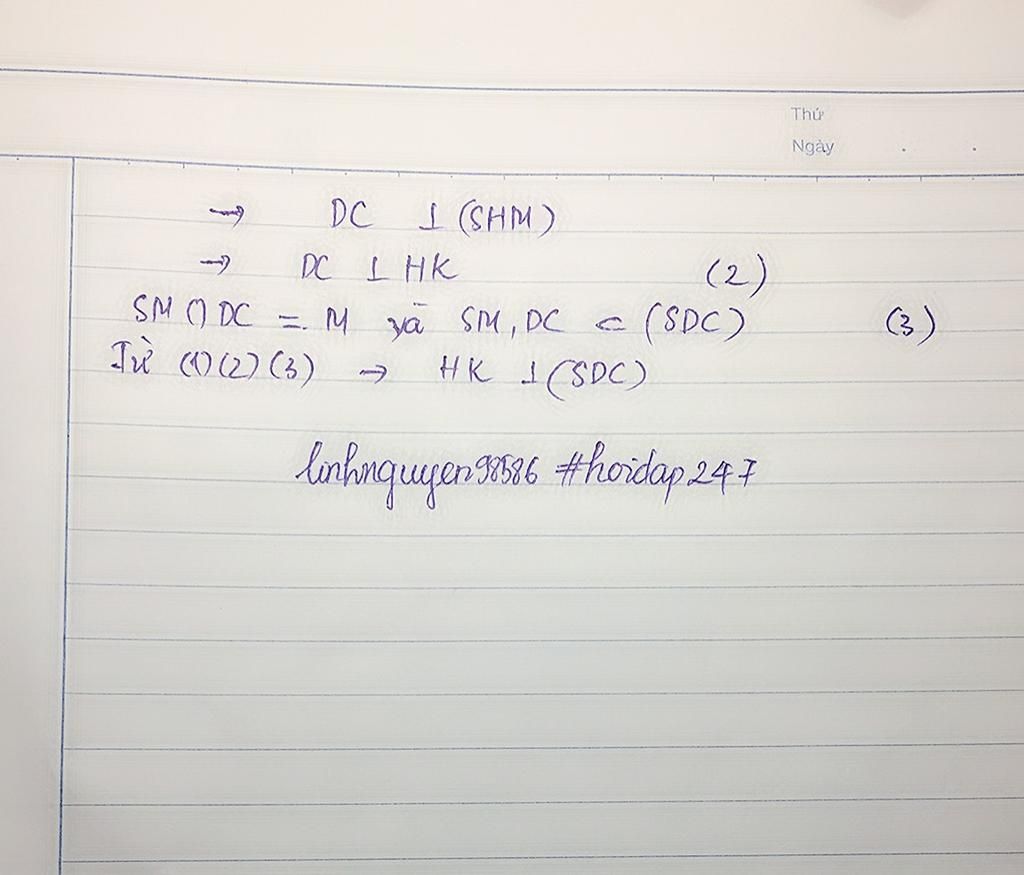 Thứ
Ngày . .
→ DC ⊥ (SHM)
→ DC ⊥ HK (2)
SM ∩ DC = M và SM, DC ⊂ (SDC) (3)
Từ (1) (2) (3) → HK ⊥ (SDC)
linhnguyen98586 #hoidap247